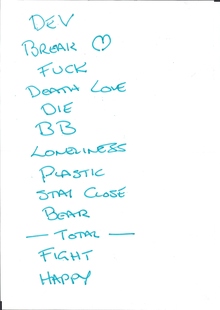 DEV
BREAK ♡
FUCK
DEATH LOVE
DIE
BB
LONELINESS
PLASTIC
STAY CLOSE
BEAR
— TOTAL —
FIGHT
HAPPY